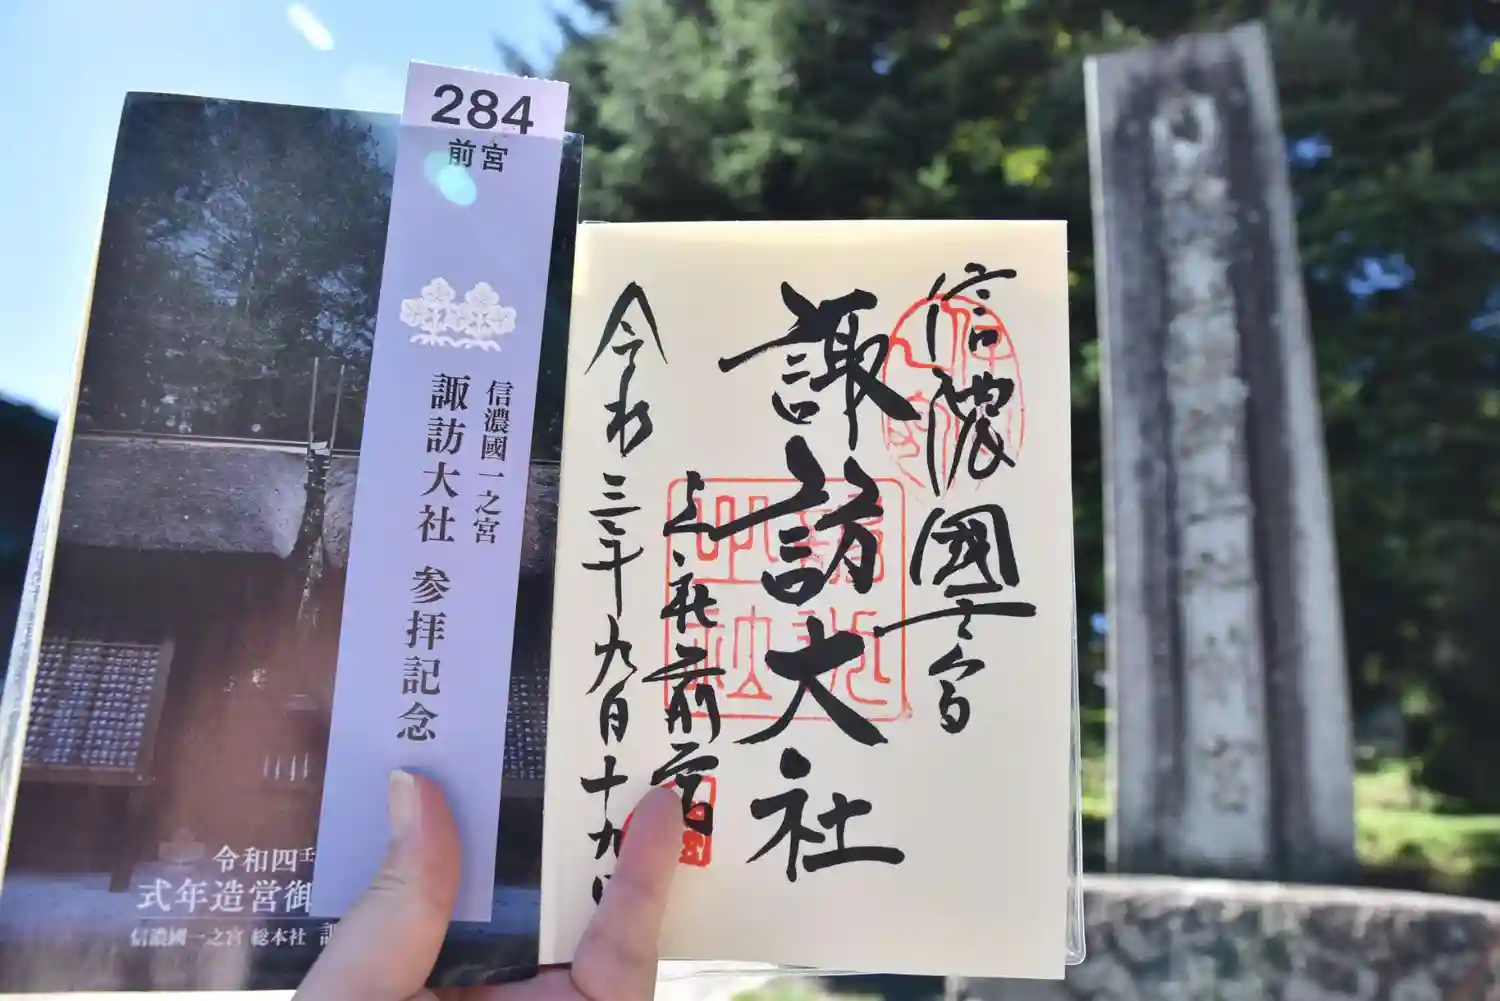 284
前宮
信濃國一之宮
諏訪大社 参拝記念
令和四壬
式年造営御
信濃國一之宮 総本社 諏
信濃國一宮
諏訪大社
上社前宮
令和三年九月十九日